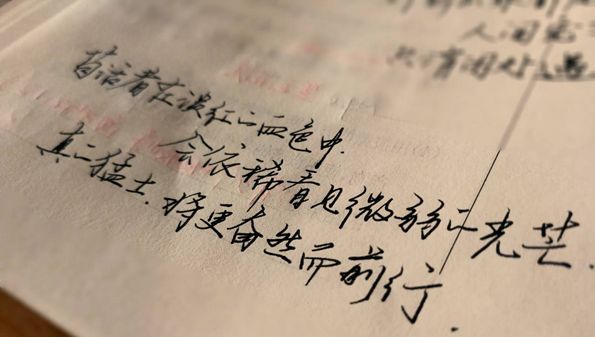 人间
苟活者在淡红的血色中.
会依稀看见微弱的光芒.
真的猛士.将更奋然而前行.